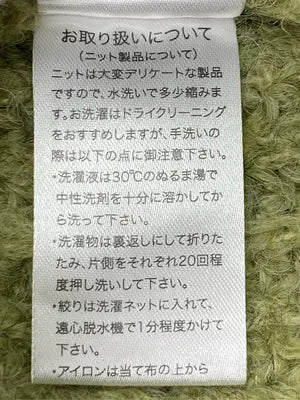 お取り扱いについて
(ニット製品について)
ニットは大変デリケートな製品
ですので、水洗いで多少縮みま
す。お洗濯はドライクリーニング
をおすすめしますが、手洗いの
際は以下の点に御注意下さい。
・洗濯液は30℃のぬるま湯で
中性洗剤を十分に溶かしてか
ら洗って下さい。
・洗濯物は裏返しにして折りた
たみ、片側をそれぞれ20回程
度押し洗いして下さい。
・絞りは洗濯ネットに入れて、
遠心脱水機で1分程度かけて
下さい。
・アイロンは当て布の上から